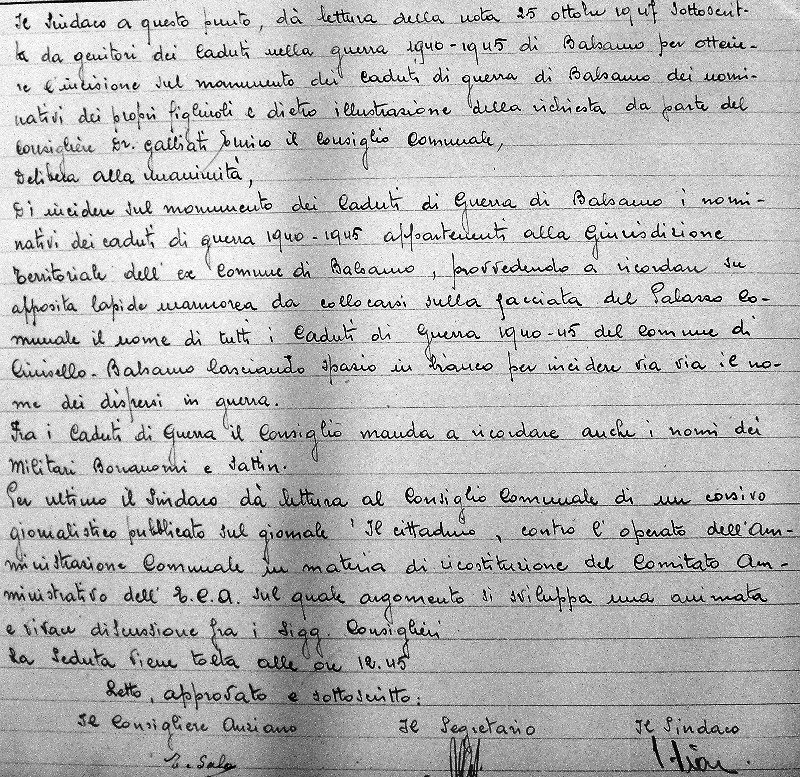 Il Sindaco a questo punto, dà lettura della nota 25 ottobre 1947 sottoscrit-
ta da genitori dei Caduti nella guerra 1940-1945 di Balsamo per ottene-
re l'incisione sul monumento dei Caduti di guerra di Balsamo dei nomi-
nativi dei propri figliuoli e dietro illustrazione della richiesta da parte del
Consigliere Dr. Galliati il Consiglio Comunale,
Delibera alla unanimità,
Di incidere sul monumento dei Caduti di Guerra di Balsamo i nomi-
nativi dei caduti di guerra 1940-1945 appartenenti alla Giurisdizione
Territoriale dell'ex Comune di Balsamo, provvedendo a ricordare su
apposita lapide marmorea da collocarsi sulla facciata del Palazzo Co-
munale il nome di tutti i Caduti di Guerra 1940-45 del Comune di
Cinisello-Balsamo lasciando spazio in bianco per incidere via via il no-
me dei dispersi in guerra.
Fra i Caduti di Guerra il Consiglio manda a ricordare anche i nomi dei
Militari Bonanomi e Sattin.
Per ultimo il Sindaco dà lettura al Consiglio Comunale di un corsivo
giornalistico pubblicato sul giornale "Il cittadino, contro l'operato dell'Am-
ministrazione Comunale in materia di ricostituzione del Comitato Am-
ministrativo dell'E.C.A. sul quale argomento si sviluppa una animata
e vivace discussione fra i Sigg. Consiglieri
La Seduta viene tolta alle ore 12.45
Letto, approvato e sottoscritto:
Il Consigliere Anziano Il Segretario Il Sindaco